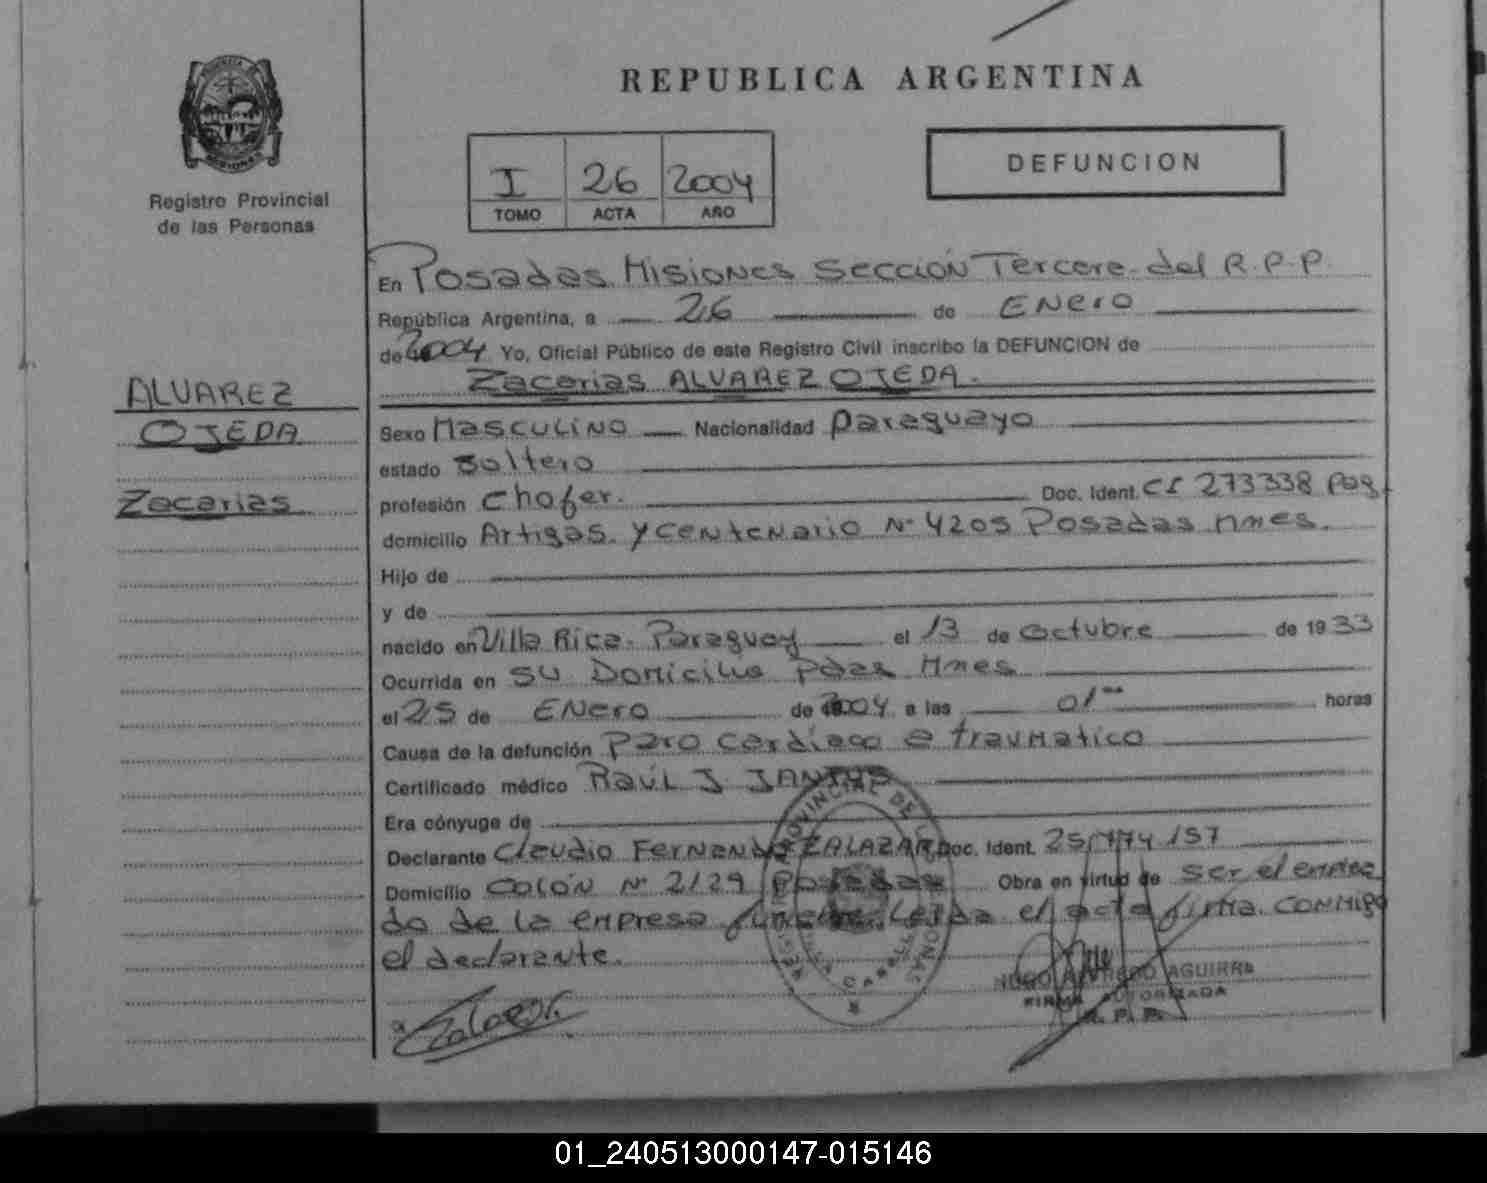 REPUBLICA ARGENTINA
Registro Provincial
de las Personas
I 26 2004
TOMO ACTA AÑO
DEFUNCION
ALVAREZ
OJEDA
Zacarias
En Posadas Misiones Sección Tercera del R.P.P.
República Argentina, a 26 de Enero
de 2004 Yo, Oficial Público de este Registro Civil inscribo la DEFUNCION de
Zacarias ALVAREZ OJEDA.
Sexo Masculino Nacionalidad Paraguayo
estado Soltero
profesión Chofer. Doc. Ident. CI 273338 Pag
domicilio Artigas y Centenario Nº 4205 Posadas Mnes.
Hijo de
y de
nacido en Villa Rica. Paraguay el 13 de Octubre de 1933
Ocurrida en su Domicilio Pdas Mnes
el 25 de Enero de 2004 a las 01 horas
Causa de la defunción Paro cardiaco e traumatico
Certificado médico Raúl J
Era cónyuge de
Declarante Claudio Fernando ZALAZAR Doc. Ident. 25.774.157
Domicilio Colón Nº 2129 Posadas Obra en virtud de ser el emplea
do de la empresa funebre. Leída el acta firma conmigo
el declarante.
HUGO ALFREDO AGUIRRE
FIRMA AUTORIZADA
R. P. P.
01_240513000147-015146